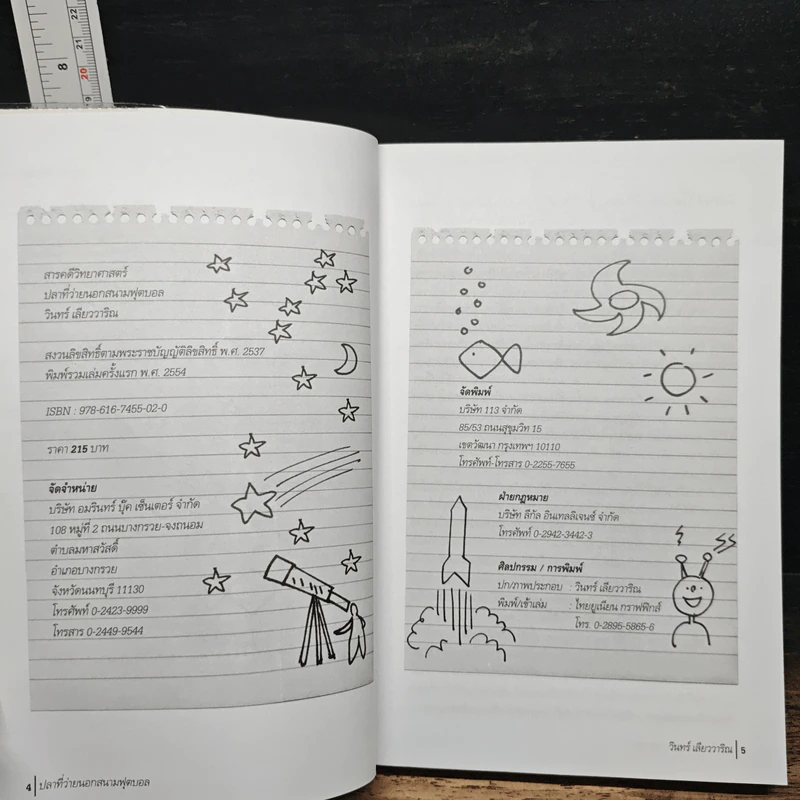 22
21
8
20
19
สารคดีวิทยาศาสตร์
ปลาที่ว่ายนอกสนามฟุตบอล
วินทร์ เลียววาริณ
สงวนลิขสิทธิ์ตามพระราชบัญญัติลิขสิทธิ์ พ.ศ. 2537
พิมพ์รวมเล่มครั้งแรก พ.ศ. 2554
ISBN : 978-616-7455-02-0
ราคา 215 บาท
จัดจำหน่าย
บริษัท อมรินทร์ บุ๊ค เซ็นเตอร์ จำกัด
108 หมู่ที่ 2 ถนนบางกรวย-จงถนอม
ตำบลมหาสวัสดิ์
อำเภอบางกรวย
จังหวัดนนทบุรี 11130
โทรศัพท์ 0-2423-9999
โทรสาร 0-2449-9544
4 ปลาที่ว่ายนอกสนามฟุตบอล
จัดพิมพ์
บริษัท 113 จำกัด
85/53 ถนนสุขุมวิท 15
เขตวัฒนา กรุงเทพฯ 10110
โทรศัพท์-โทรสาร 0-2255-7655
ฝ่ายกฎหมาย
บริษัท ลีกัล อินเทลลิเจนซ์ จำกัด
โทรศัพท์ 0-2942-3442-3
ศิลปกรรม / การพิมพ์
ปก/ภาพประกอบ : วินทร์ เลียววาริณ
พิมพ์/เข้าเล่ม : ไทยยูเนียน กราฟฟิกส์
โทร. 0-2895-5865-6
วินทร์ เลียววาริณ 5